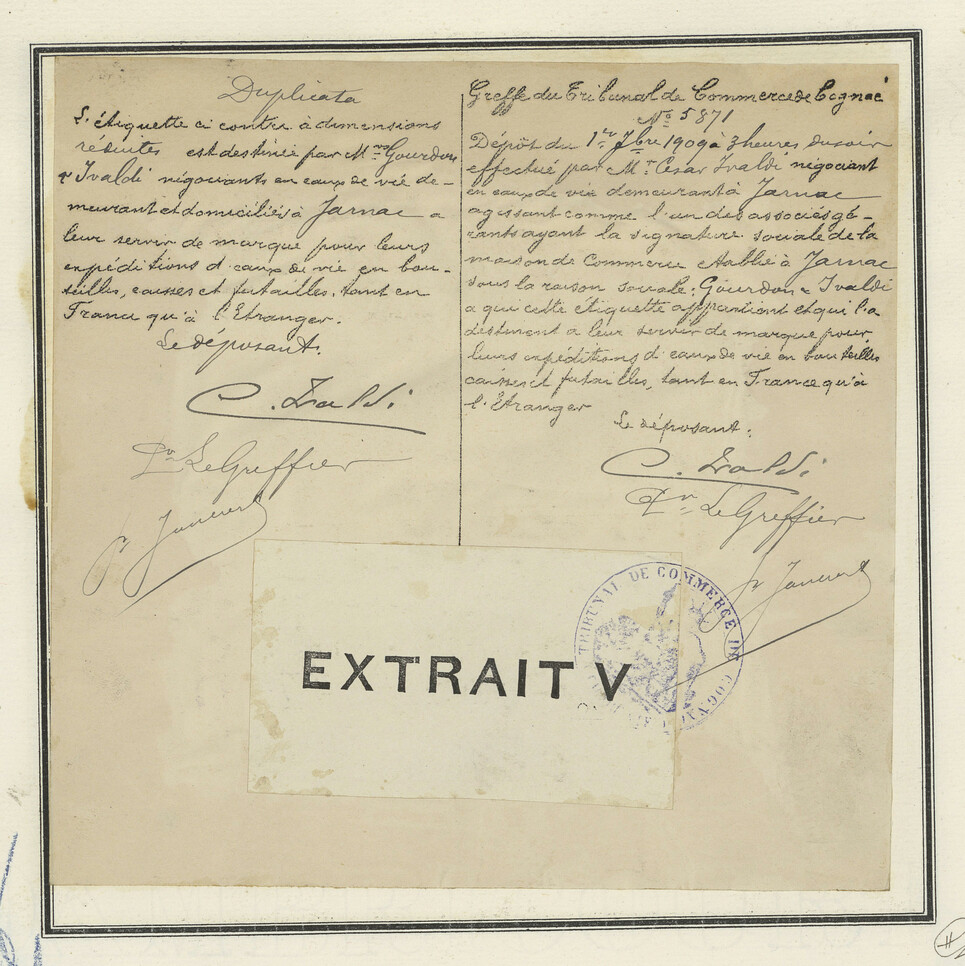 Duplicata
L'étiquette ci contre à dimensions
réduites est destinée par Mrs Gourdon
& Ivaldi négociants en eaux de vie de-
meurant et domiciliés à Jarnac a
leur servir de marque pour leurs
expéditions d'eaux de vie en bou-
teilles, caisses et futailles, tant en
France qu'à l'Etranger.
Le déposant:
C. Ivaldi
Pr Le Greffier
Greffe du Tribunal de Commerce de Cognac
No 5871
Dépôt du 1er 7bre 1909 à 3 heures du soir
effectué par Mr César Ivaldi négociant
en eaux de vie demeurant à Jarnac
agissant comme l'un des associés gé-
rants ayant la signature sociale de la
maison de Commerce etablie à Jarnac
sous la raison sociale: Gourdon & Ivaldi
a qui cette étiquette appartient et qui la
destinent a leur servir de marque pour
leurs expéditions d'eaux de vie en bouteilles
caisses et futailles, tant en France qu'à
l'Etranger
Le déposant:
C. Ivaldi
Pr Le Greffier
EXTRAIT V
TRIBUNAL DE COMMERCE DE COGNAC